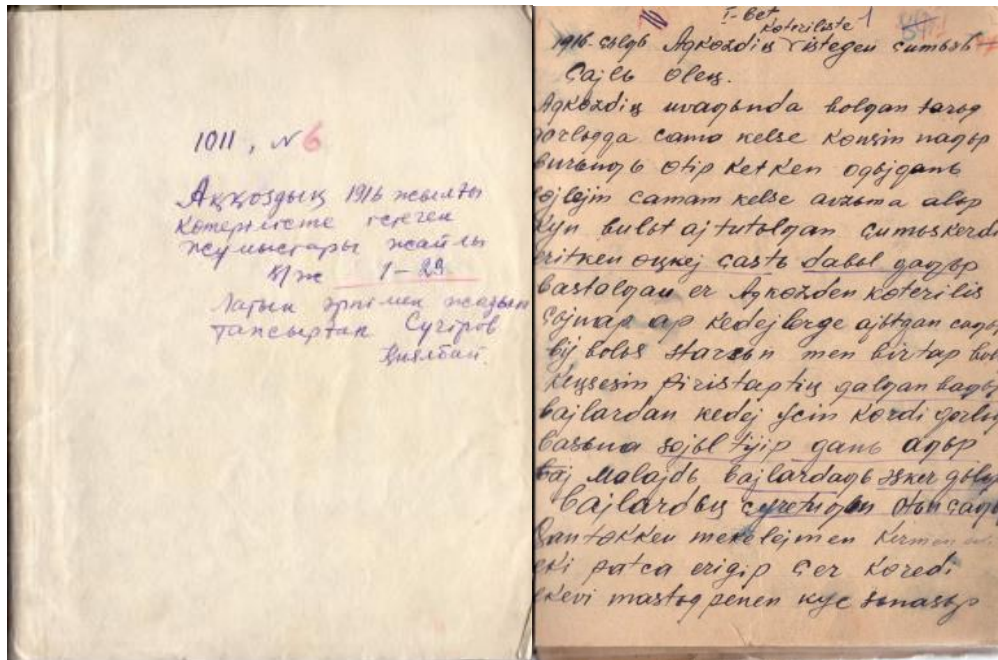 1011, N 6
Аққоздың 1916 жылғы
көтерілісте істеген
жұмыстары жайлы
Қ/ж 1-29
Латын әрпімен жазып
тапсырған Сүгіров
Қиялбай.
I-bet
1
koteriliste
1916-çьlqь Aqkozdiꞑ istegen çumьsь
çajlь oleꞑ.
Aqkozdiꞑ uvaqьnda bolqan tarьq
zorlьqqa çama kelse konsin naqьp
burьnqь otip ketken oqьjqanь
sojlejin çamam kelse avzьma alьp
kyn bulьt aj tutolqan çumьskerdi
eritken oꞑkej çastь dabьl qaqьp
bastalqan er Aqkozden koteriliş
kedejlerge ajьtqan
bij bolьs starsьn men birtap bol
keꞑsesin piristaptiꞑ qalqan
bajlardan kedej ycin kordi qorlьq
basьna sojьl tijip qanь aqьp
baj malajdь bajlardaqь əsker
bajlardьꞑ
qan tokken mekelejmen
eki patca erigip çer koredi
ekevi mastьq penen kyc sьnasьp